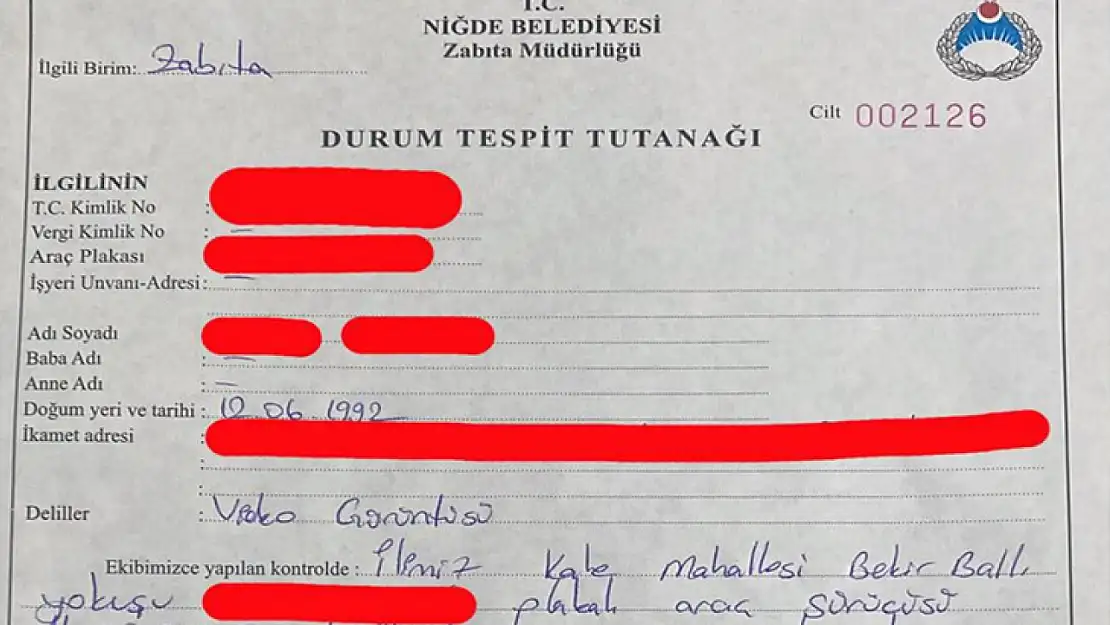 T.C.
NİĞDE BELEDİYESİ
Zabıta Müdürlüğü
İlgili Birim: Zabıta
Cilt 002126
DURUM TESPİT TUTANAĞI
İLGİLİNİN
T.C. Kimlik No :
Vergi Kimlik No : —
Araç Plakası
İşyeri Unvanı-Adresi: —
Adı Soyadı
Baba Adı : —
Anne Adı : —
Doğum yeri ve tarihi : 12.06.1992
İkamet adresi :
:
:
Deliller : Video Görüntüsü
Ekibimizce yapılan kontrolde : İlimiz Kale Mahallesi Bekir Ballı
yokuşu plakalı araç sürücüsü